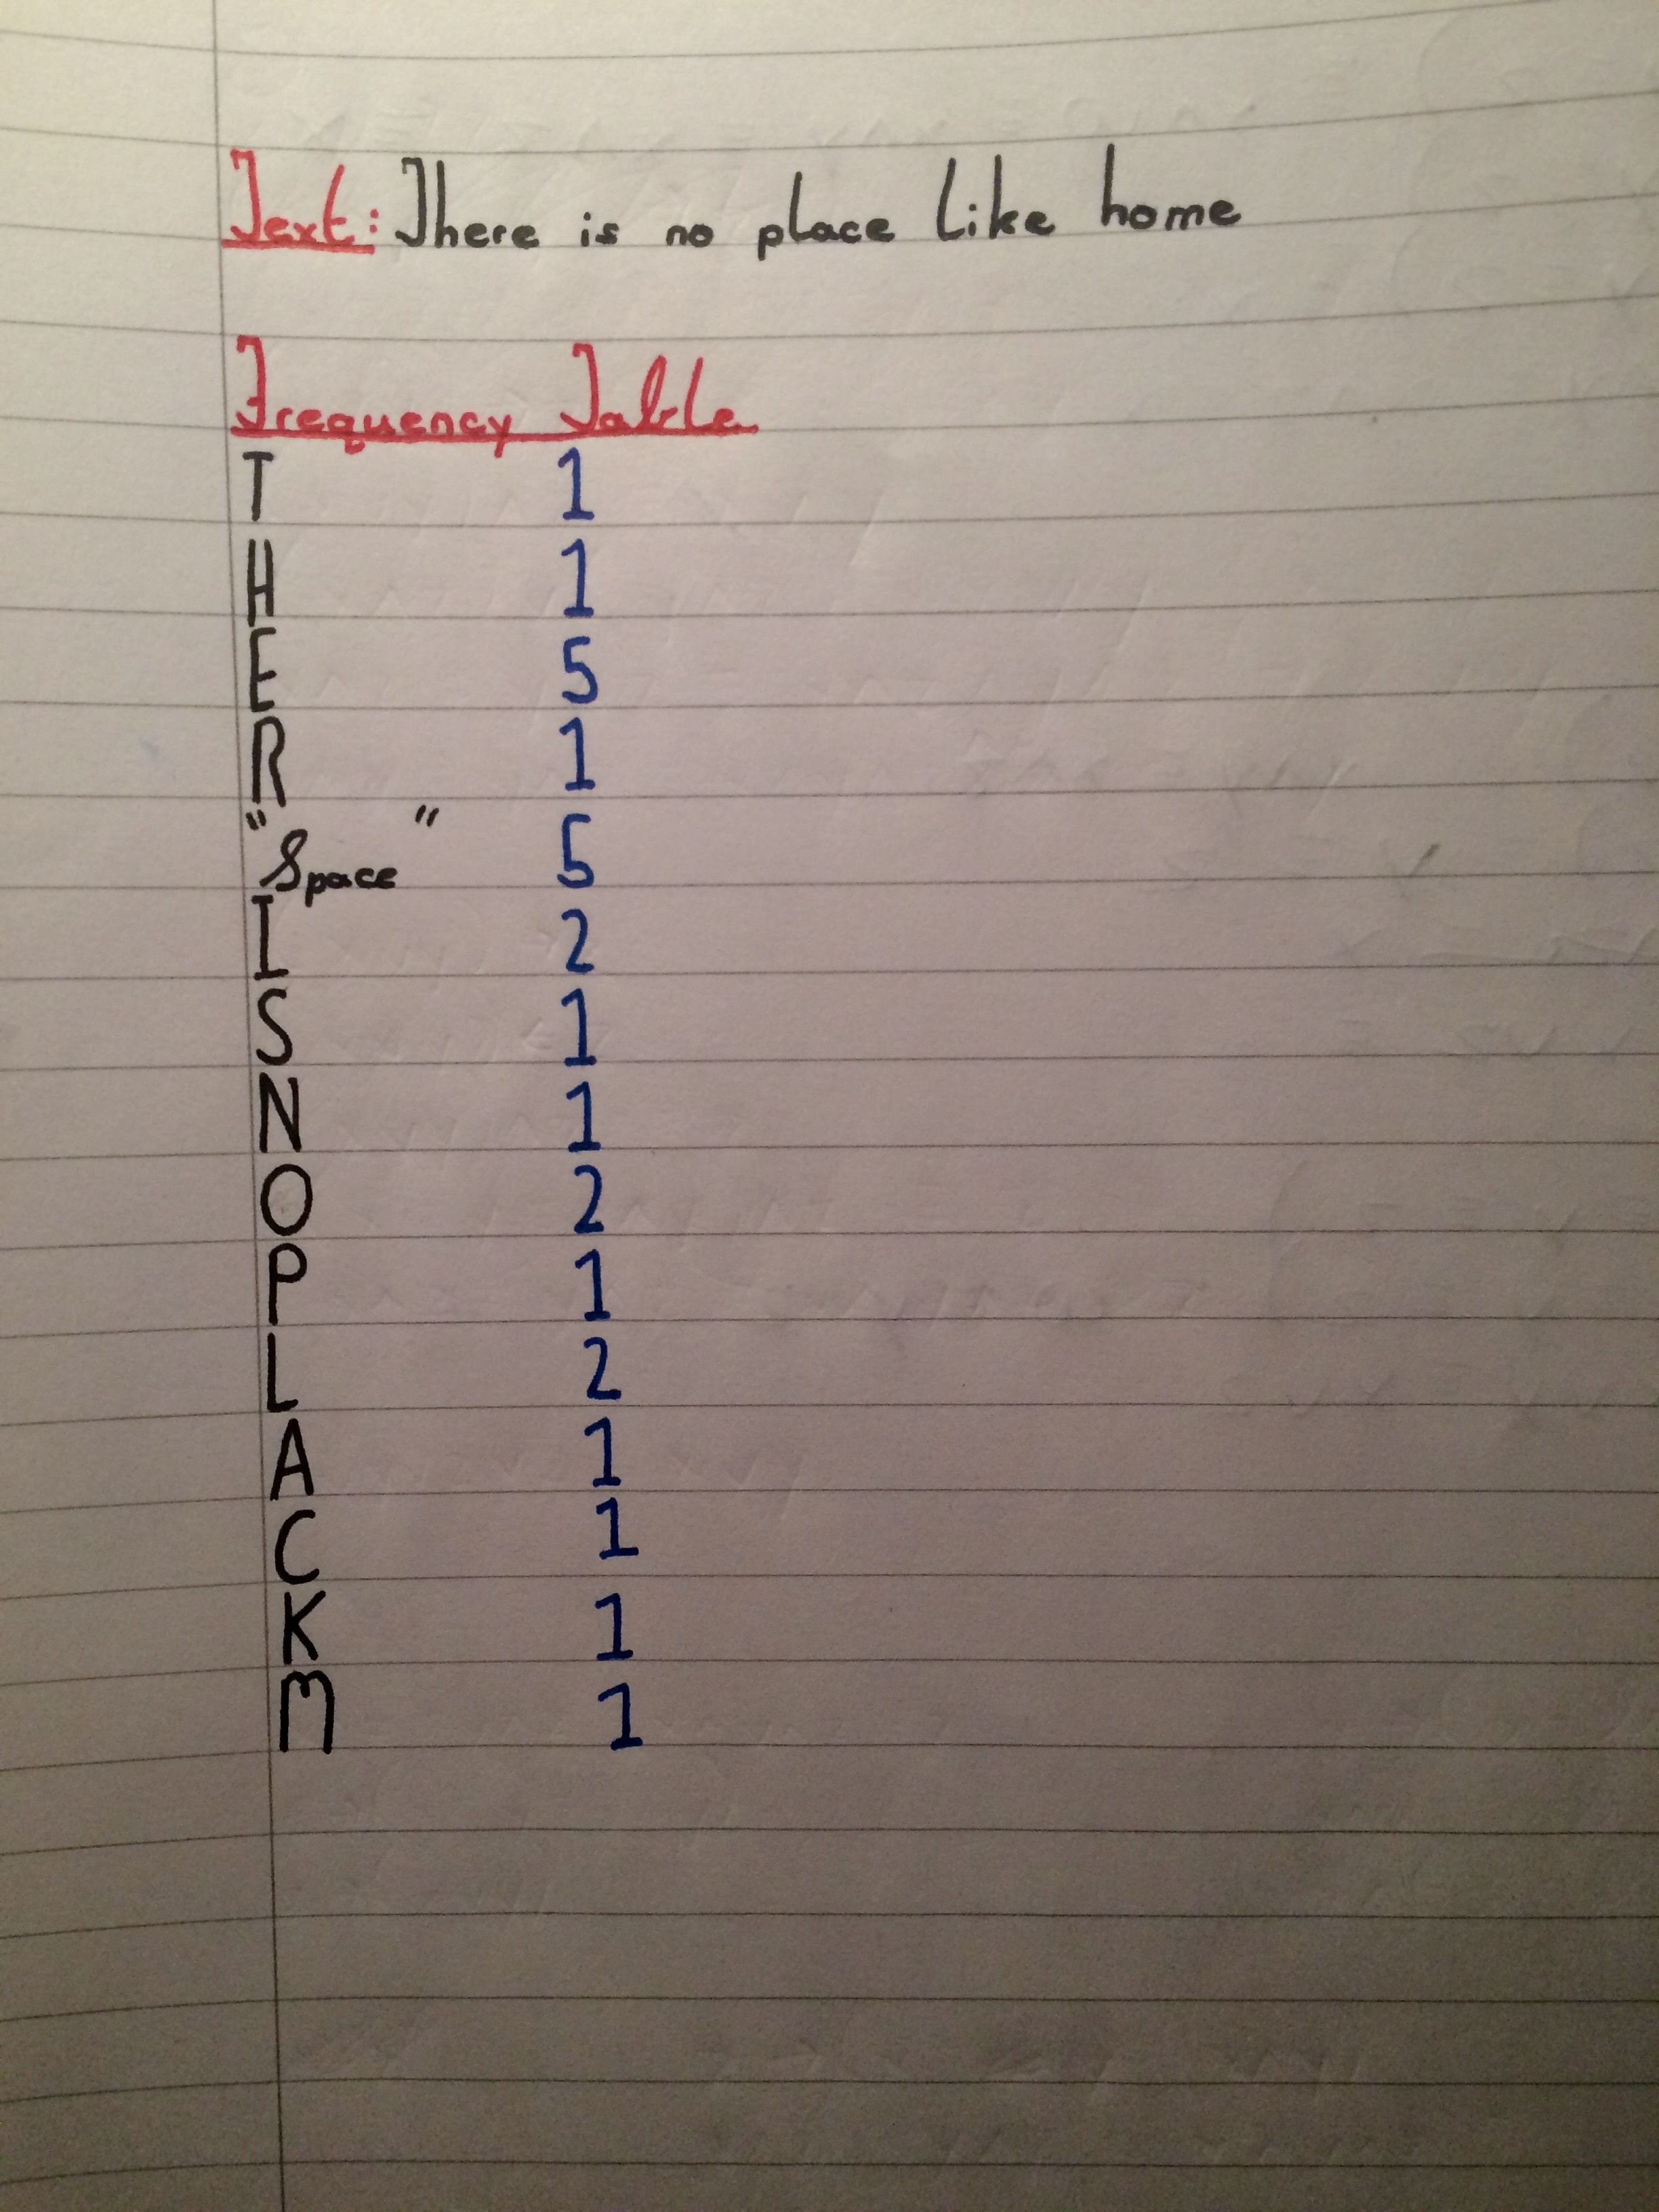 Text: There is no place like home
Frequency Table
T 1
H 1
E 5
R 1
"Space" 5
I 2
S 1
N 1
O 2
P 1
L 2
A 1
C 1
K 1
M 1